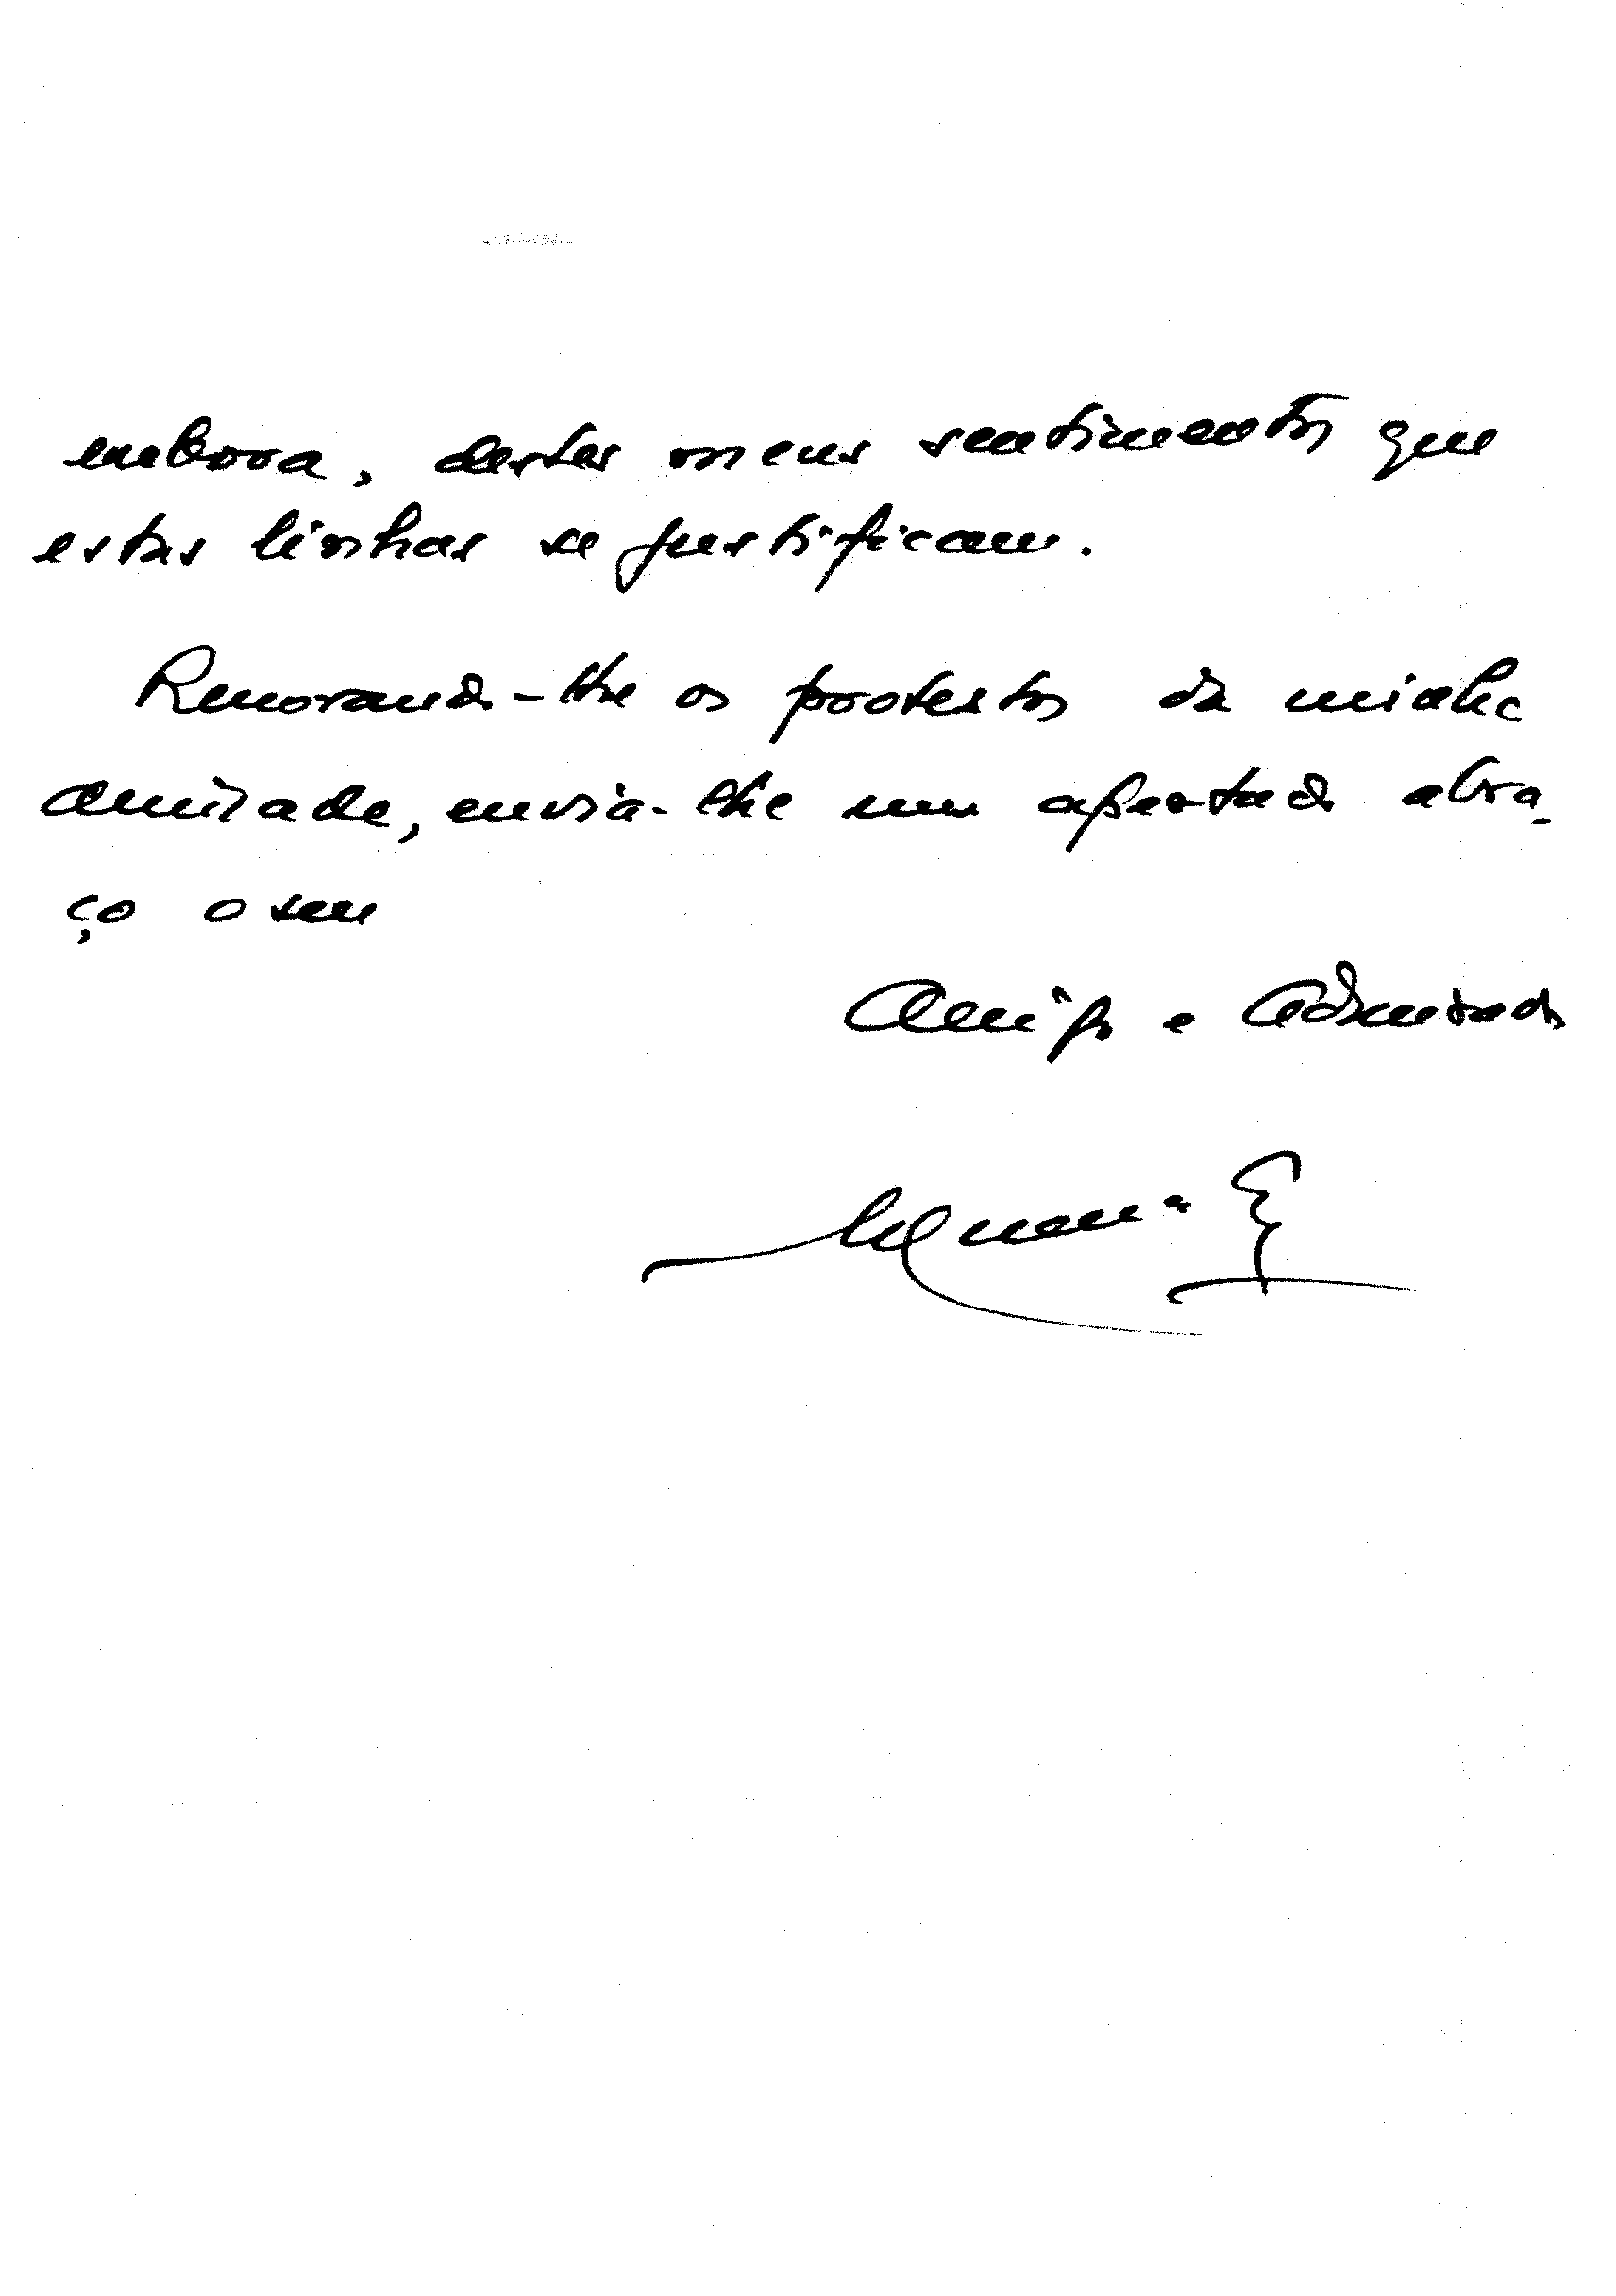 embora, destes meus sentimentos que
estas linhas se justificam.
Renovando-lhe os protestos da minha
amizade, envia-lhe um apertado abra-
ço o seu
Amigo e Admirador